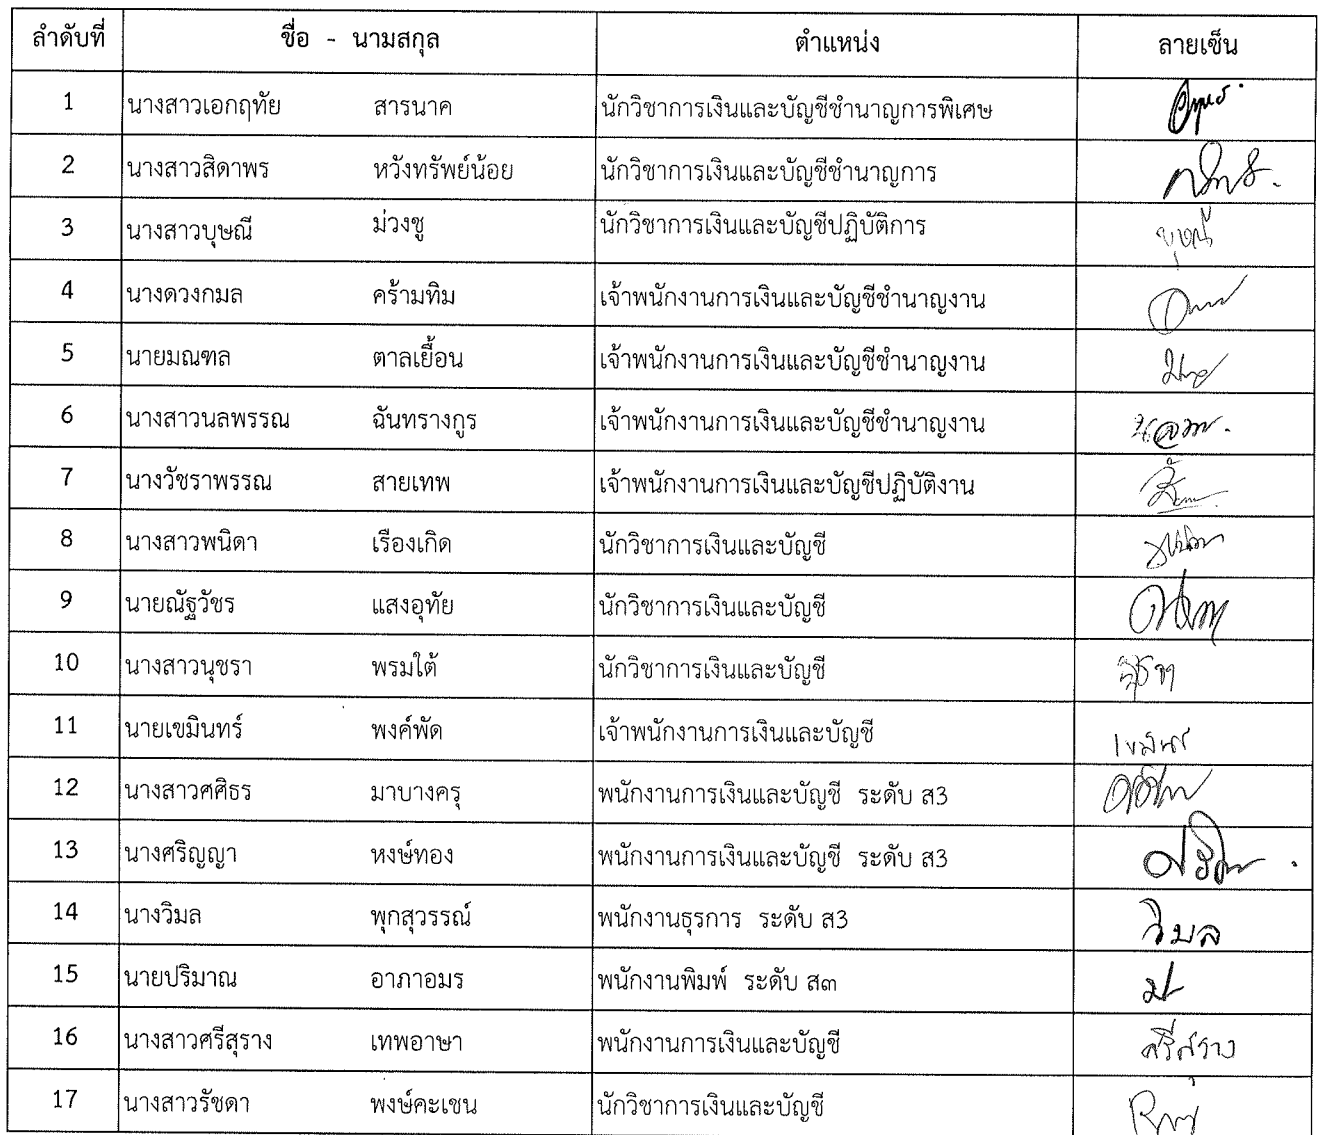 ลำดับที่ ชื่อ - นามสกุล ตำแหน่ง ลายเซ็น
1 นางสาวเอกฤทัย สารนาค นักวิชาการเงินและบัญชีชำนาญการพิเศษ
2 นางสาวสิดาพร หวังทรัพย์น้อย นักวิชาการเงินและบัญชีชำนาญการ
3 นางสาวบุษณี ม่วงชู นักวิชาการเงินและบัญชีปฏิบัติการ บุษณี
4 นางดวงกมล คร้ามทิม เจ้าพนักงานการเงินและบัญชีชำนาญงาน
5 นายมณฑล ตาลเยื้อน เจ้าพนักงานการเงินและบัญชีชำนาญงาน
6 นางสาวนลพรรณ ฉันทรางกูร เจ้าพนักงานการเงินและบัญชีชำนาญงาน
7 นางวัชราพรรณ สายเทพ เจ้าพนักงานการเงินและบัญชีปฏิบัติงาน
8 นางสาวพนิดา เรืองเกิด นักวิชาการเงินและบัญชี
9 นายณัฐวัชร แสงอุทัย นักวิชาการเงินและบัญชี
10 นางสาวนุชรา พรมใต้ นักวิชาการเงินและบัญชี นุชรา
11 นายเขมินทร์ พงค์พัด เจ้าพนักงานการเงินและบัญชี เขมินทร์
12 นางสาวศศิธร มาบางครุ พนักงานการเงินและบัญชี ระดับ ส3
13 นางศริญญา หงษ์ทอง พนักงานการเงินและบัญชี ระดับ ส3
14 นางวิมล พุกสุวรรณ์ พนักงานธุรการ ระดับ ส3 วิมล
15 นายปริมาณ อาภาอมร พนักงานพิมพ์ ระดับ ส๓
16 นางสาวศรีสุราง เทพอาษา พนักงานการเงินและบัญชี ศรีสุราง
17 นางสาวรัชดา พงษ์คะเชน นักวิชาการเงินและบัญชี